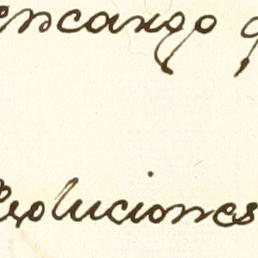 encargo
soluciones